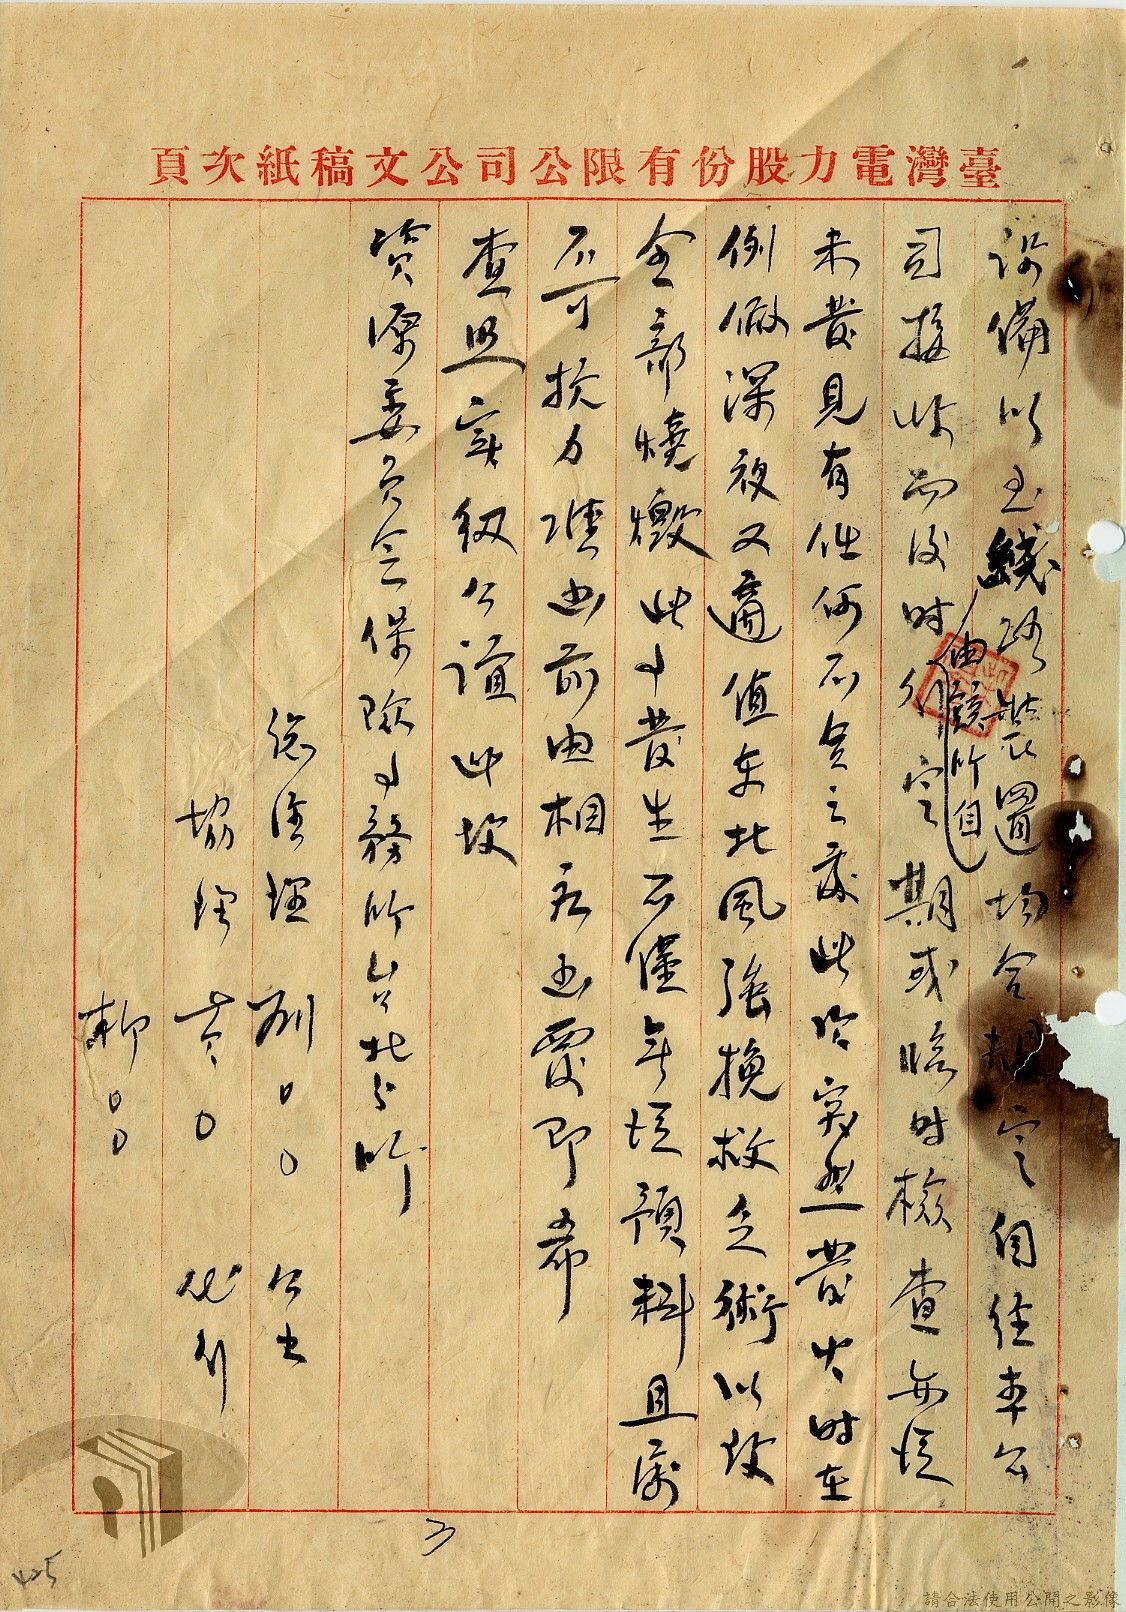 臺灣電力股份有限公司公文稿紙次頁
設備以至線路裝置均合規定自經本公
司接收而後時由該所自行定期或臨時檢查每從
未發見有任何不合之處此次突然發火時在
例假深夜又適值東北風強挽救乏術以致
全部燒燬此事發生不僅無從預料且屬
不可抗力準函前由相應函覆即希
查照實級公誼此致
資源委員會保險事務所台北分所
總經理 劉○○ 公出
協理 黃○ 代行
柳○○
3
425
請合法使用公開之影像